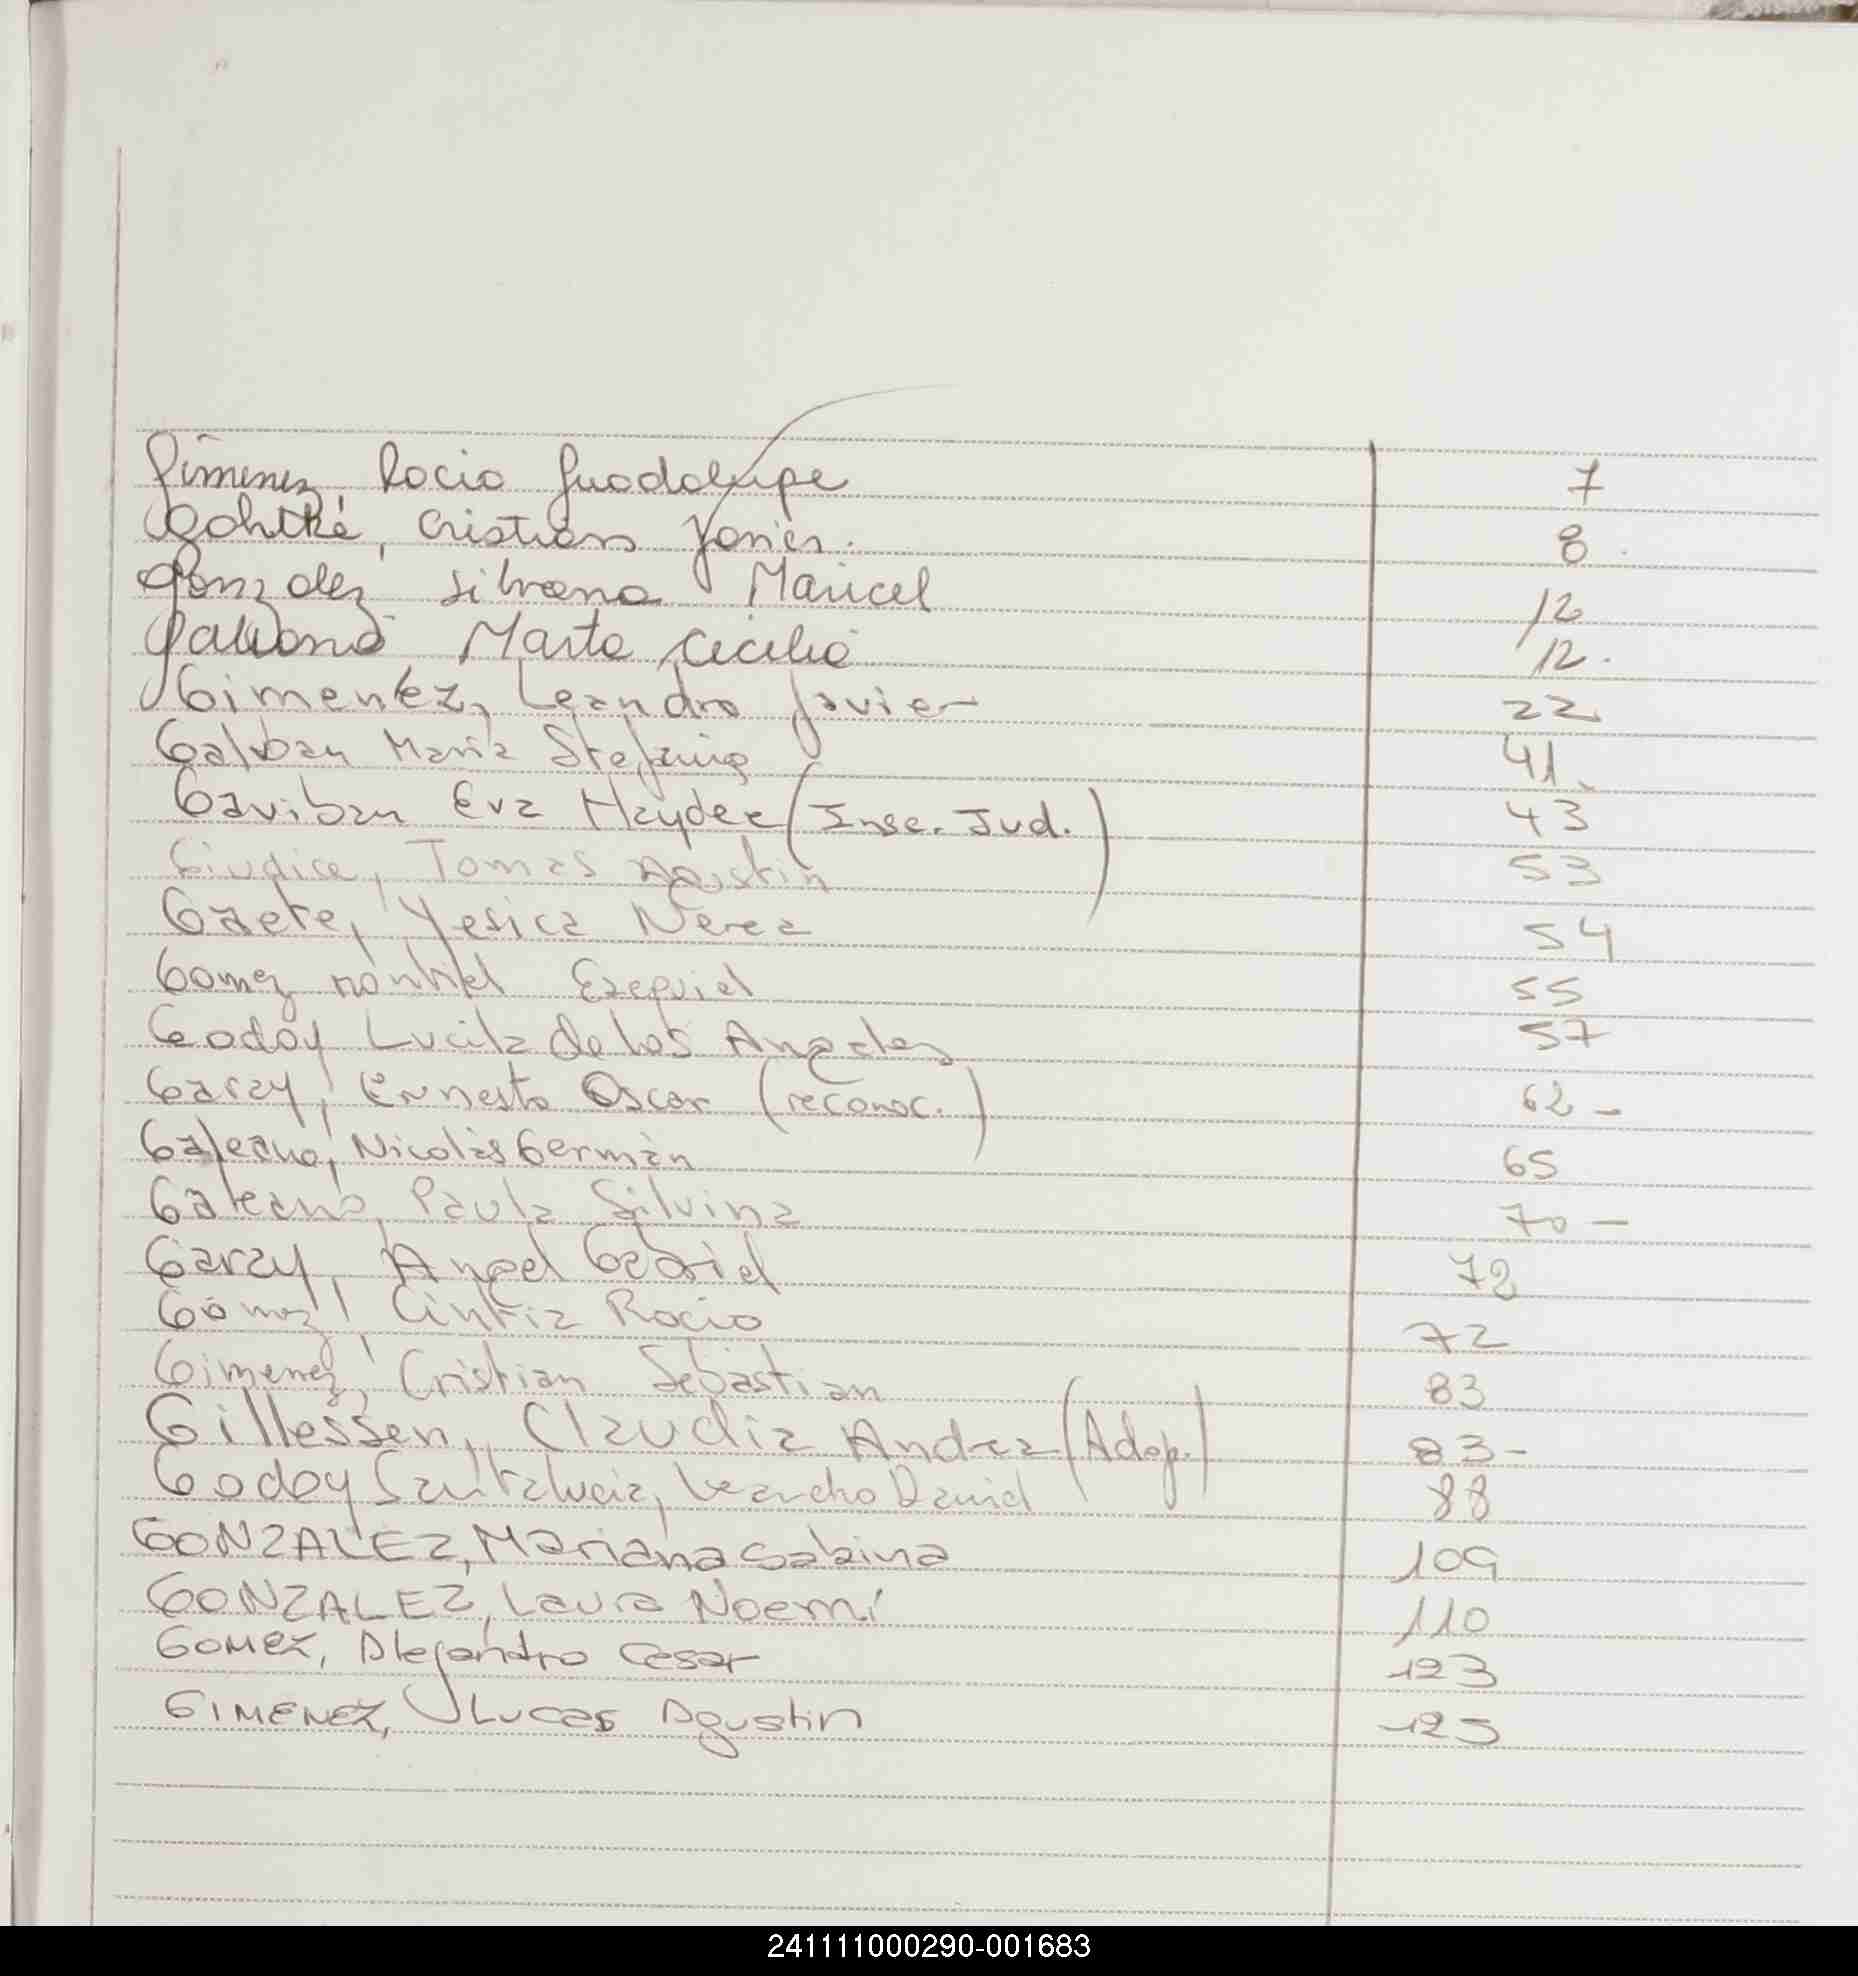 Gimenez Rocio Guadalupe 7
Gohtké, Cristian Javier. 8
Gonzalez Silvana Maricel 12
Galvano Marta Cecilia 12.
Gimenez, Leandro Javier 22
Galvan Maria Stefania 41
Gaviban Eva Haydee (Insc. Jud.) 43
Giudice, Tomas Agustin 53
Gaete, Yesica Nerea 54
Gomez Ezequiel 55
Godoy Lucila de los Angeles 57
Garay, Ernesto Oscar (reconoc.) 62-
Galeano, Nicolás Germán 65
Galeano, Paula Silvina 70-
Garay, Angel Gabriel 72
Gómez, Cintia Rocio 72
Gimenez, Cristian Sebastian 83
Gillessen, Claudia Andrea (Adop.) 83-
Godoy Santalucia, Leandro David 88
GONZALEZ, Mariana Sabina 109
GONZALEZ, Laura Noemí 110
GOMEZ, Alejandro Cesar 123
GIMENEZ, Lucas Agustin 125
241111000290-001683